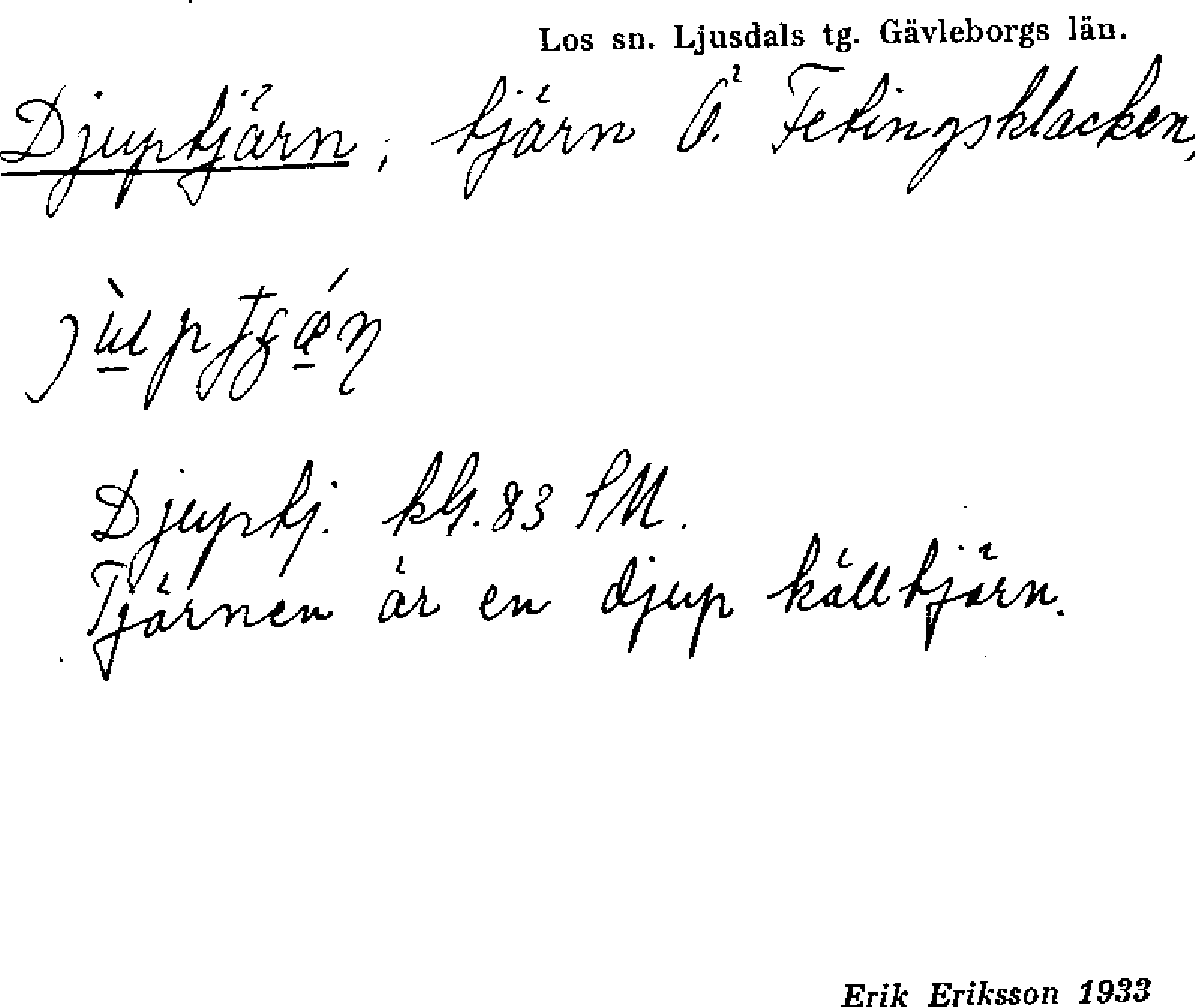 Los sn. Ljusdals tg. Gävleborgs län.
Djuptjärn, tjärn Ö. Fetingsklacken,
Djuptj. kbl. 83 SM.
Tjärnen är en djup källtjärn.
Erik Eriksson 1933